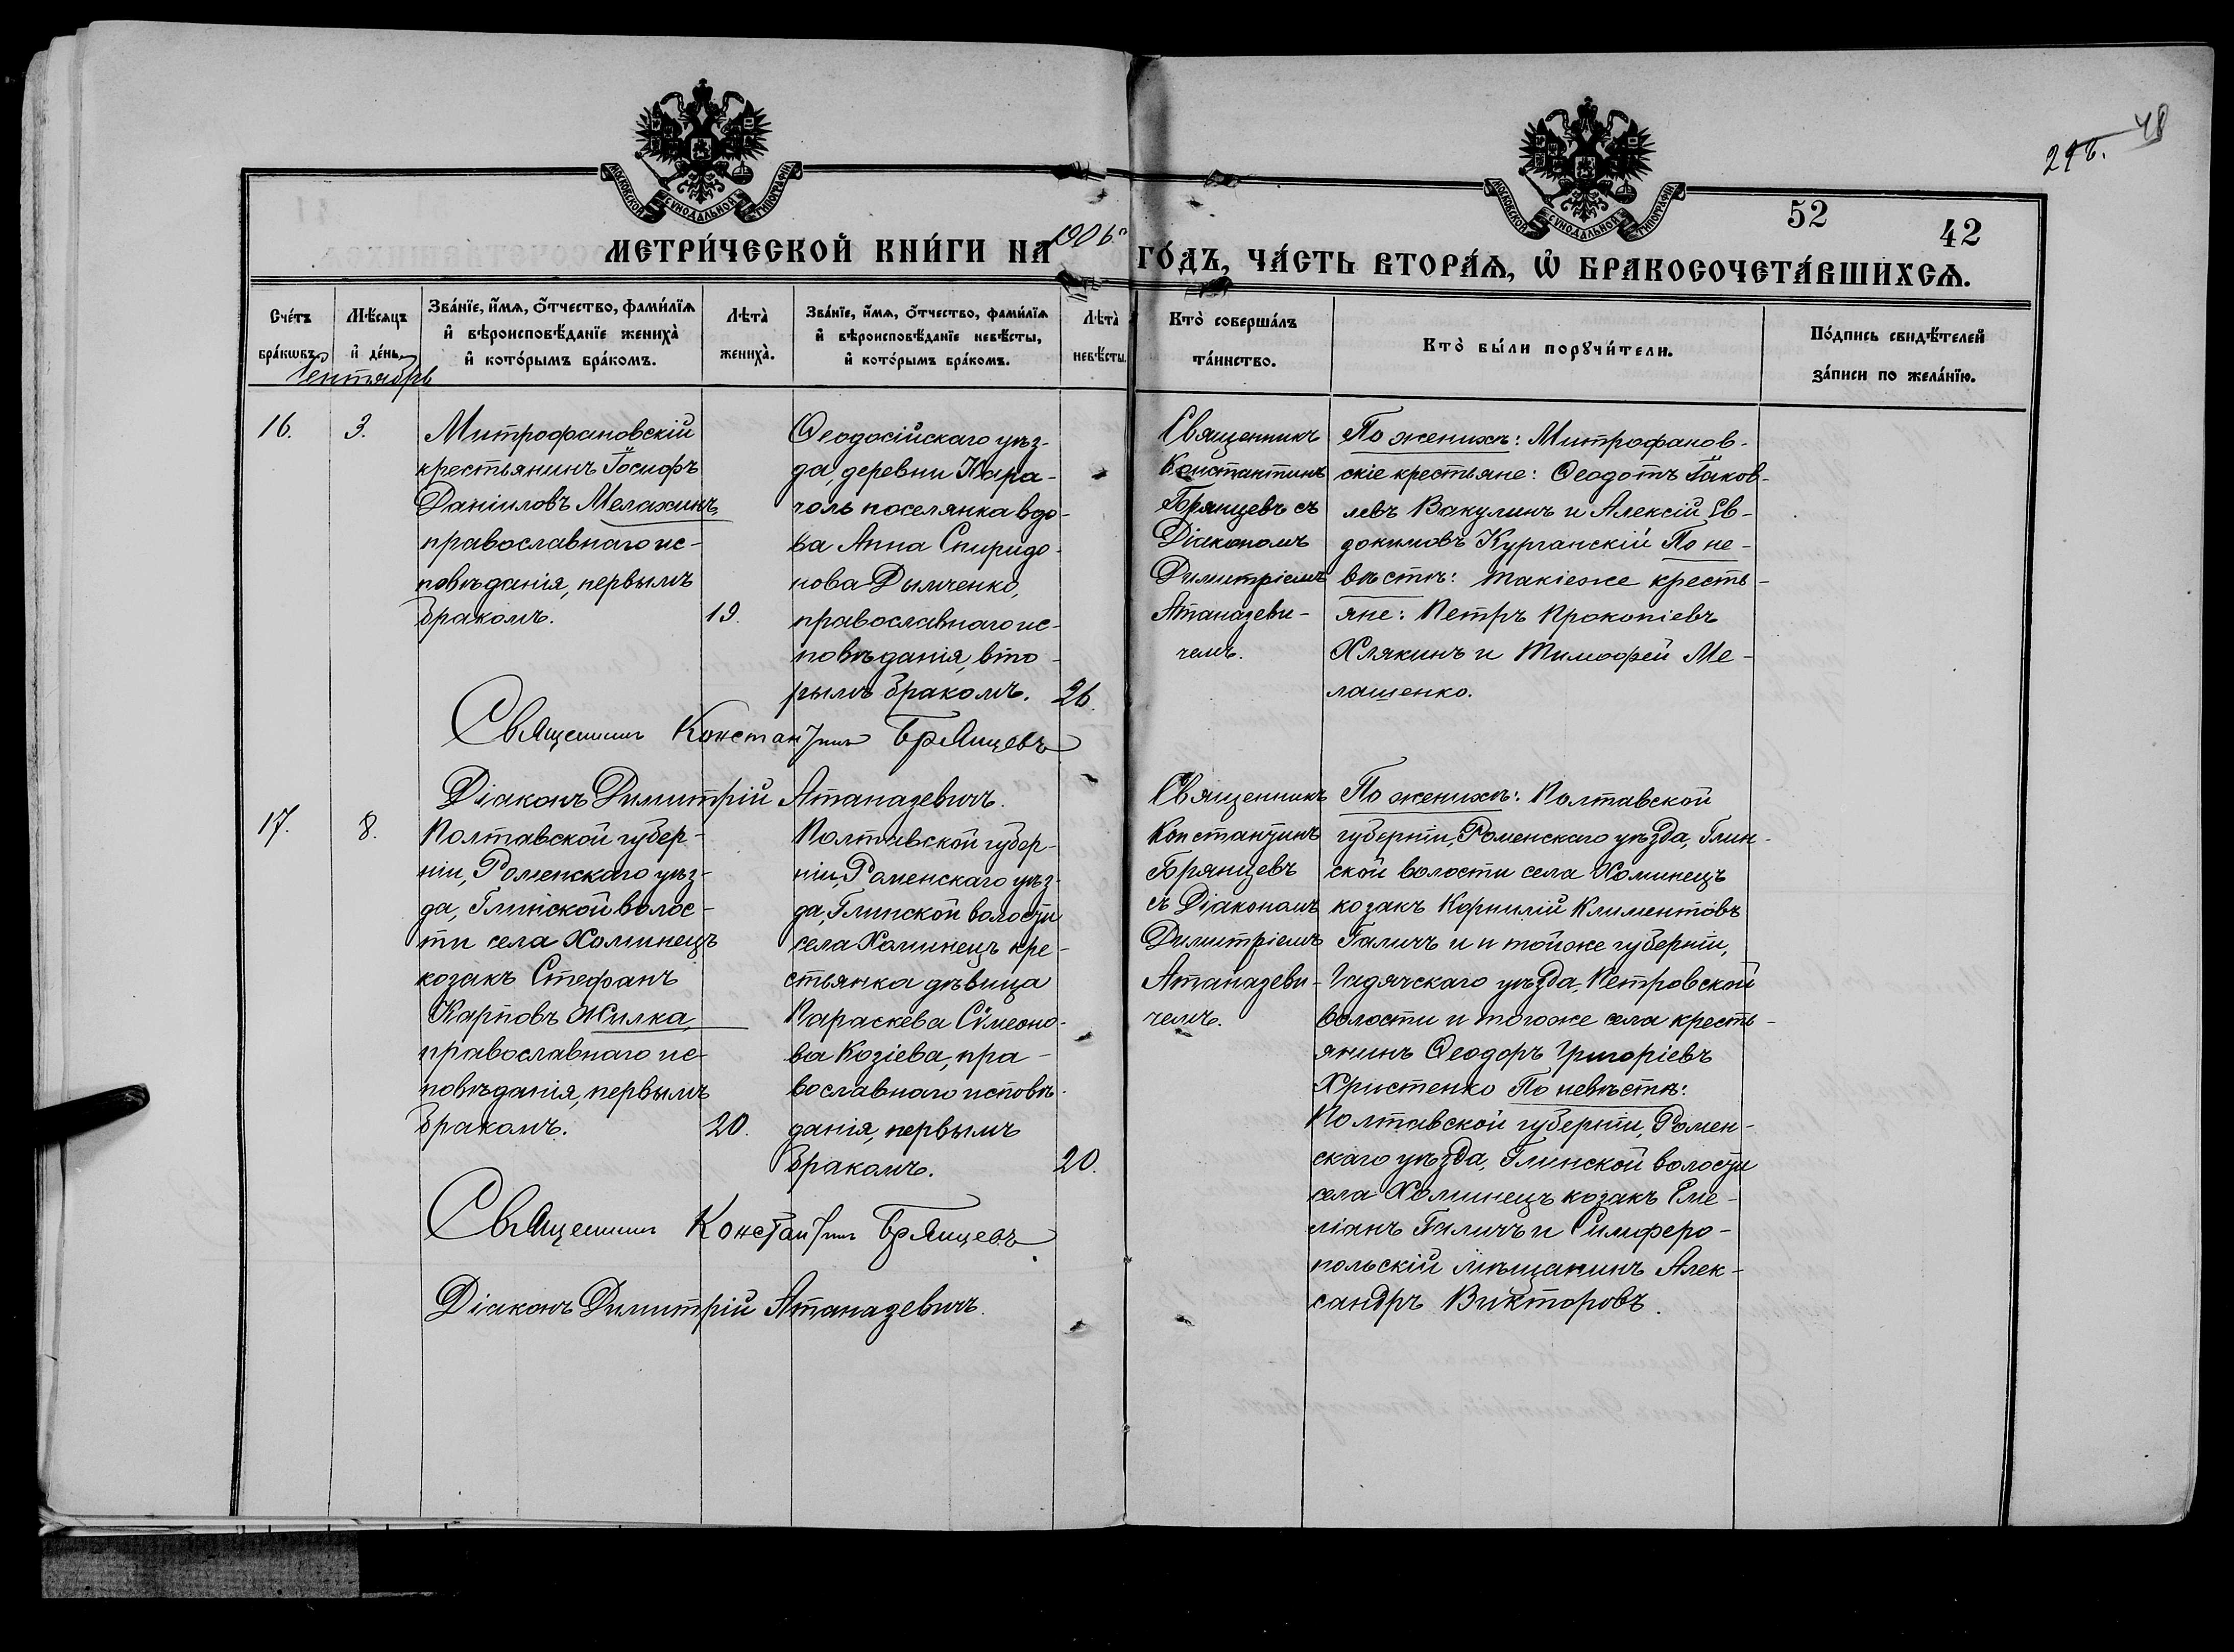 296. 48
52
42
МОСКОВСКОЙ СѴНОДАЛЬНОЙ ТИПОГРАФІИ
МОСКОВСКОЙ СѴНОДАЛЬНОЙ ТИПОГРАФІИ
МЕТРИ́ЧЕСКОЙ КНИ́ГИ НА 1906 ГО́ДЪ, ЧА́СТЬ ВТОРА́Ѧ, Ѽ БРАКОСОЧЕТА́ВШИХСѦ.
Сче́тъ
бра́кѡвъ.
Мѣ́сяцъ
и҆ де́нь.
Зва́нїе, и҆́мѧ, ѻ҆́тчество, фами́лїѧ
и҆ вѣроисповѣ́данїе жениха̀
и҆ кото́рымъ бра́комъ.
Лѣта̀
жениха̀.
Зва́нїе, и҆́мѧ, ѻ҆́тчество, фами́лїѧ
и҆ вѣроисповѣ́данїе невѣ́сты,
и҆ кото́рымъ бра́комъ.
Лѣта̀
невѣ́сты.
Кто̀ соверша́лъ
та́инство.
Кто̀ бы́ли порꙋчи́тели.
По́дпись свидѣ́телей
за́писи по жела́нїю.
Сентябрь
16.
3.
Митрофановскій
крестьянинъ Іосифъ
Даніиловъ Мелахинъ,
православнаго ис-
повѣданія, первымъ
бракомъ.
19.
Ѳеодосійскаго уѣз-
да, деревни Кара-
чоль поселянка вдо-
ва Анна Спиридо-
нова Дымченко,
православнаго ис-
повѣданія, вто-
рымъ бракомъ.
26.
Священникъ
Константинъ
Брянцевъ съ
Діакономъ
Димитріемъ
Атаназеви-
чемъ.
По женихѣ: Митрофанов-
скіе крестьяне: Ѳеодотъ Іаков-
левъ Вакулинъ и Алексій Ев-
докимовъ Курганскій По не-
вѣстѣ: такіеже кресть-
яне: Петръ Прокопіевъ
Хлякинъ и Тимоѳей Ме-
лашенко.
Священникъ Константинъ Брянцевъ
Діаконъ Димитрій Атаназевичъ.
17.
8.
Полтавской губер-
ніи, Роменскаго уѣз-
да, Глинской волос-
ти села Хоминецъ
козакъ Стефанъ
Карповъ Жилка,
православнаго ис-
повѣданія, первымъ
бракомъ.
20.
Полтавской губер-
ніи, Роменскаго уѣз-
да, Глинской волости
села Хоминецъ кре-
стьянка дѣвица
Параскева Сѵмеоно-
ва Козіева, пра-
вославнаго исповѣ-
данія, первымъ
бракомъ.
20.
Священникъ
Константинъ
Брянцевъ
съ Діакономъ
Димитріемъ
Атаназеви-
чемъ.
По женихѣ: Полтавской
губерніи, Роменскаго уѣзда, Глин-
ской волости села Хоминецъ
козакъ Корнилій Климентовъ
Галичъ и п тойже губерніи,
Гадячскаго уѣзда, Петровской
волости и тогоже села кресть-
янинъ Ѳеодоръ Григоріевъ
Христенко По невѣстѣ:
Полтавской губерніи, Ромен-
скаго уѣзда, Глинской волости
села Хоминецъ козакъ Еме-
ліанъ Галичъ и Симферо-
польскій мѣщанинъ Алек-
сандръ Викторовъ.
Священникъ Константинъ Брянцевъ
Діаконъ Димитрій Атаназевичъ.